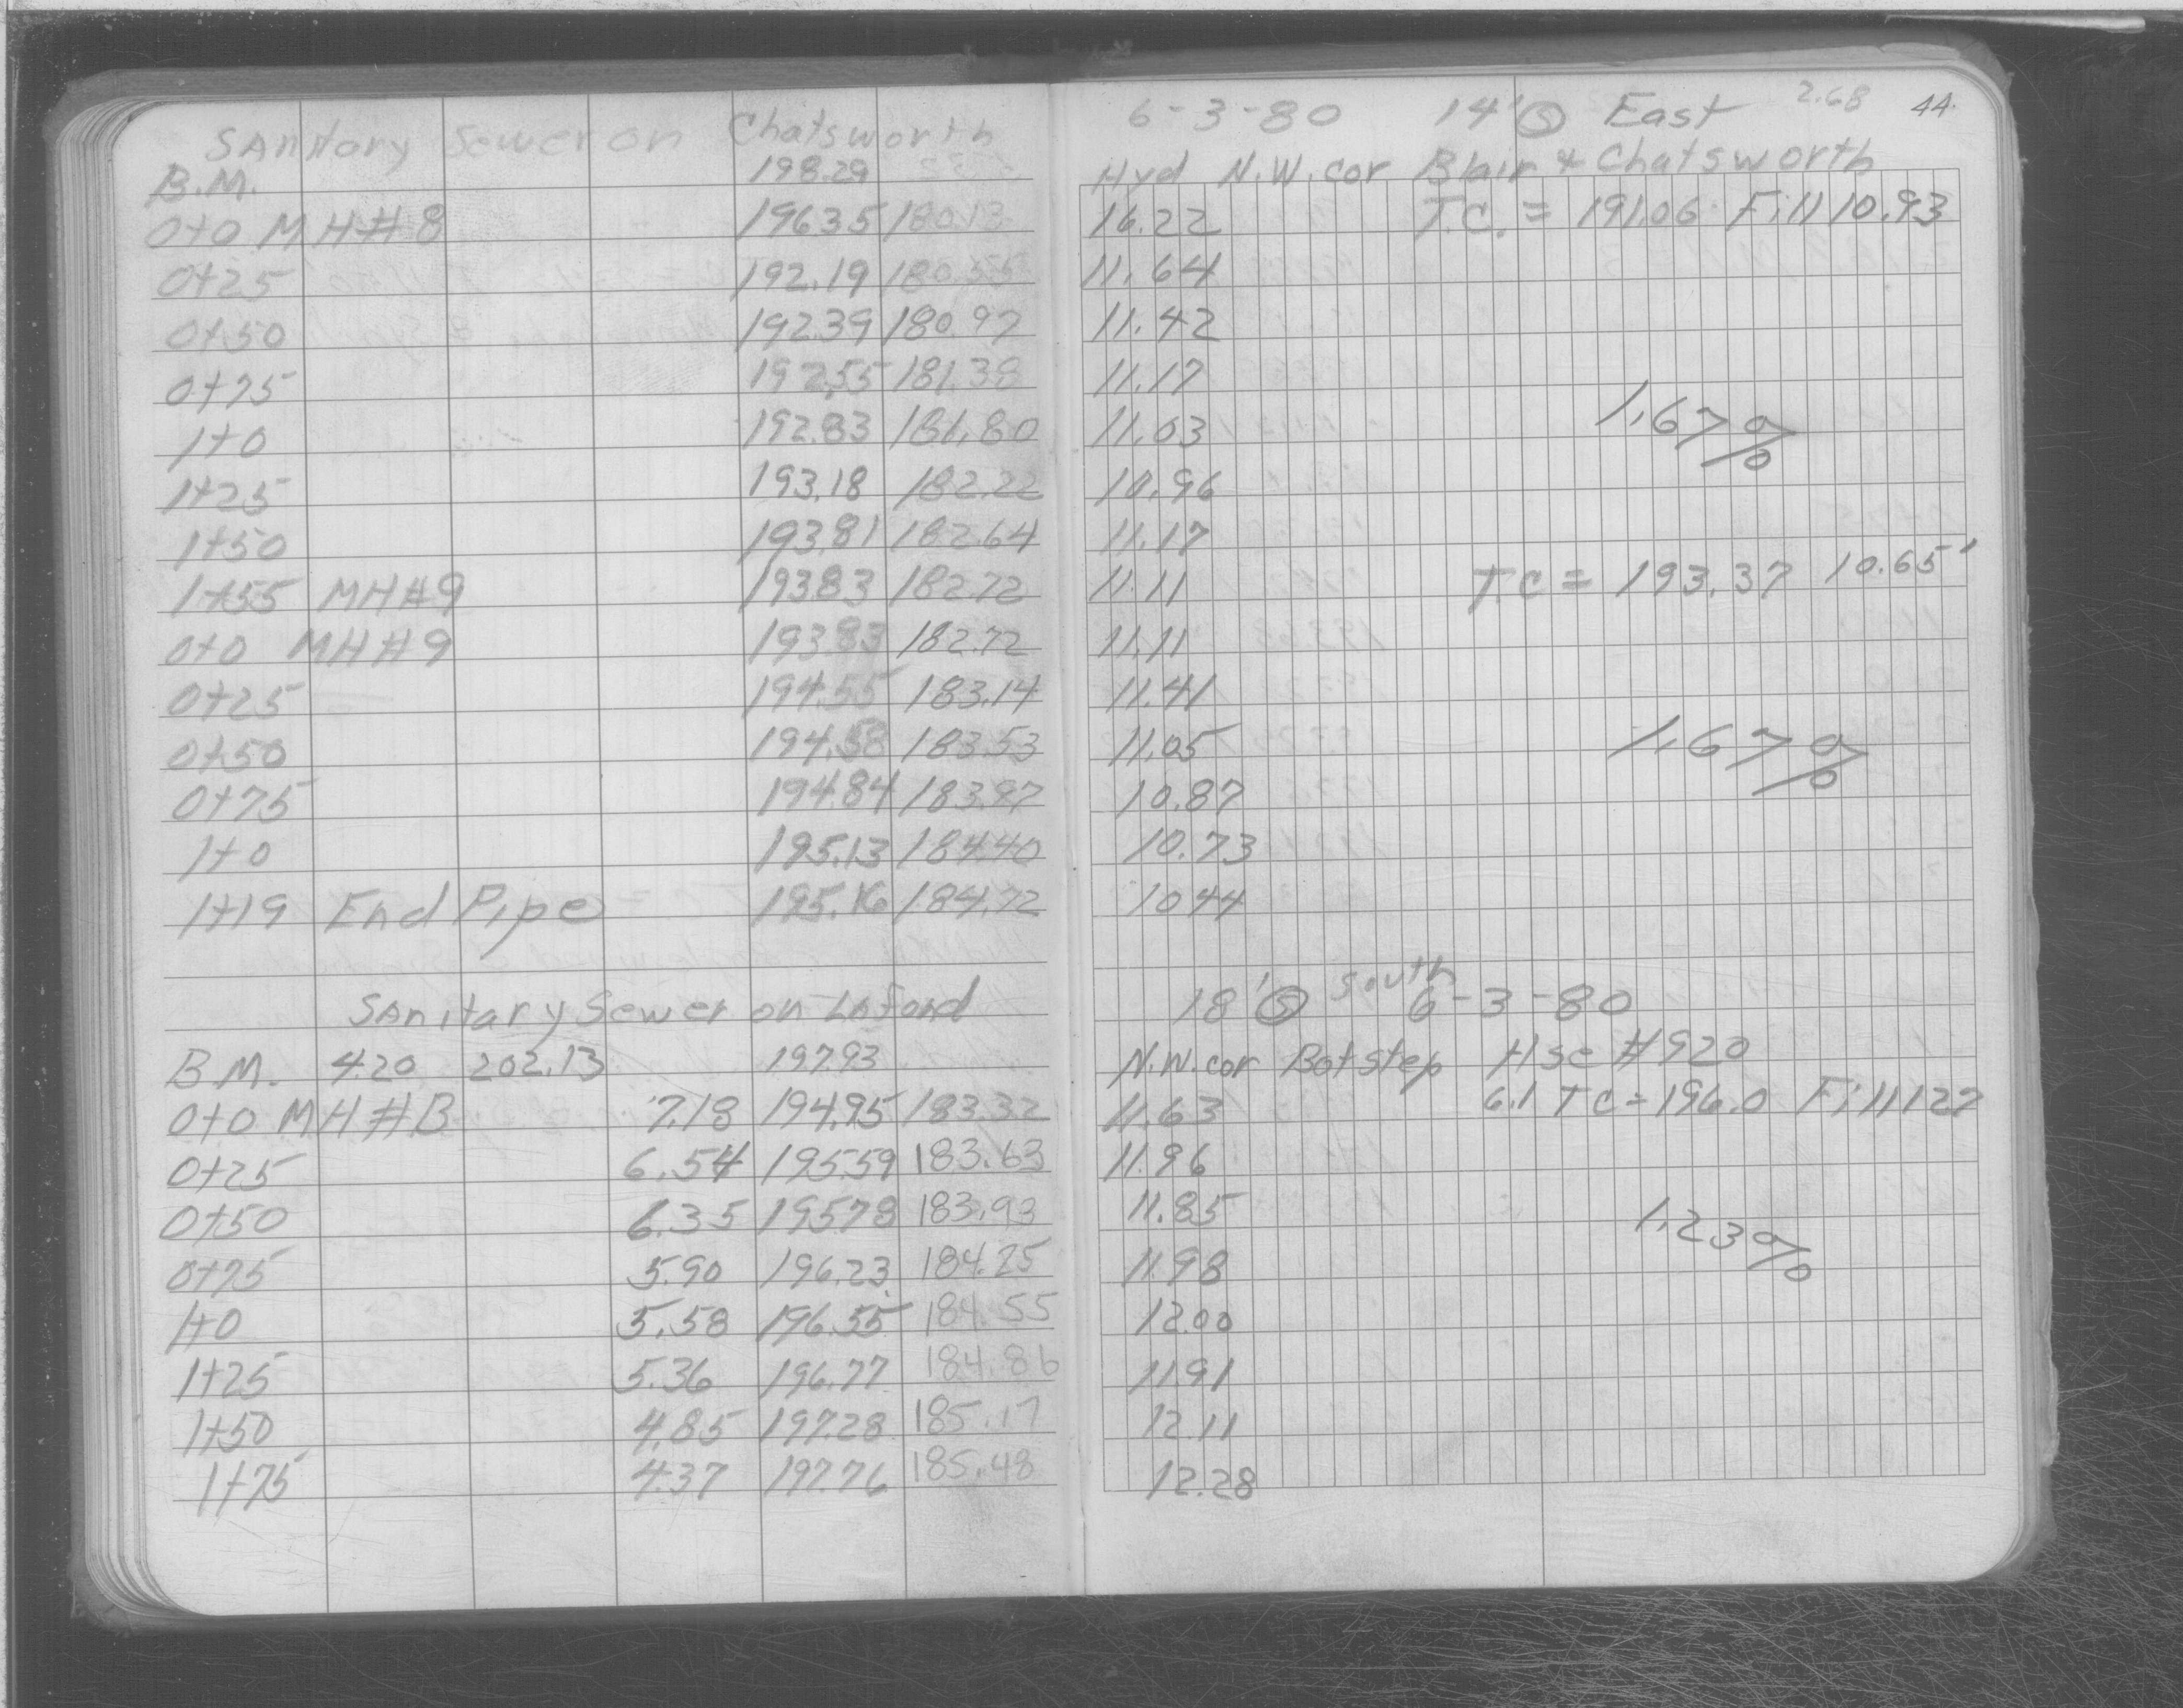 Sanitary Sewer on Chatsworth 6-3-80 14' Ⓢ East 2.68 44
B.M. 198.29 Hyd N.W. cor Blair & Chatsworth
0+0 MH#8 196.35 180.13 16.22 T.C. = 191.06 Fill 10.93
0+25 192.19 180.55 11.64
0+50 192.39 180.97 11.42
0+75 192.55 181.38 11.17
1+0 192.83 181.80 11.03 1.67%
1+25 193.18 182.22 10.96
1+50 193.81 182.64 11.17
1+55 MH#9 193.83 182.72 11.11 T.C = 193.37 10.65'
0+0 MH#9 193.83 182.72 11.11
0+25 194.55 183.14 11.41
0+50 194.58 183.53 11.05 1.67%
0+75 194.84 183.97 10.87
1+0 195.13 184.40 10.73
1+19 End Pipe 195.16 184.72 10.44
Sanitary Sewer on Lafond 18' Ⓢ South 6-3-80
B.M. 4.20 202.13 197.93 N.W. cor Bot step Hse #920
0+0 MH#B 7.18 194.95 183.32 11.63 6.1 TC=196.0 Fill 127
0+25 6.54 195.59 183.63 11.96
0+50 6.35 195.78 183.93 11.85 1.23%
0+75 5.90 196.23 184.25 11.98
1+0 5.58 196.55 184.55 12.00
1+25 5.36 196.77 184.86 11.91
1+50 4.85 197.28 185.17 12.11
1+75 4.37 197.76 185.48 12.28